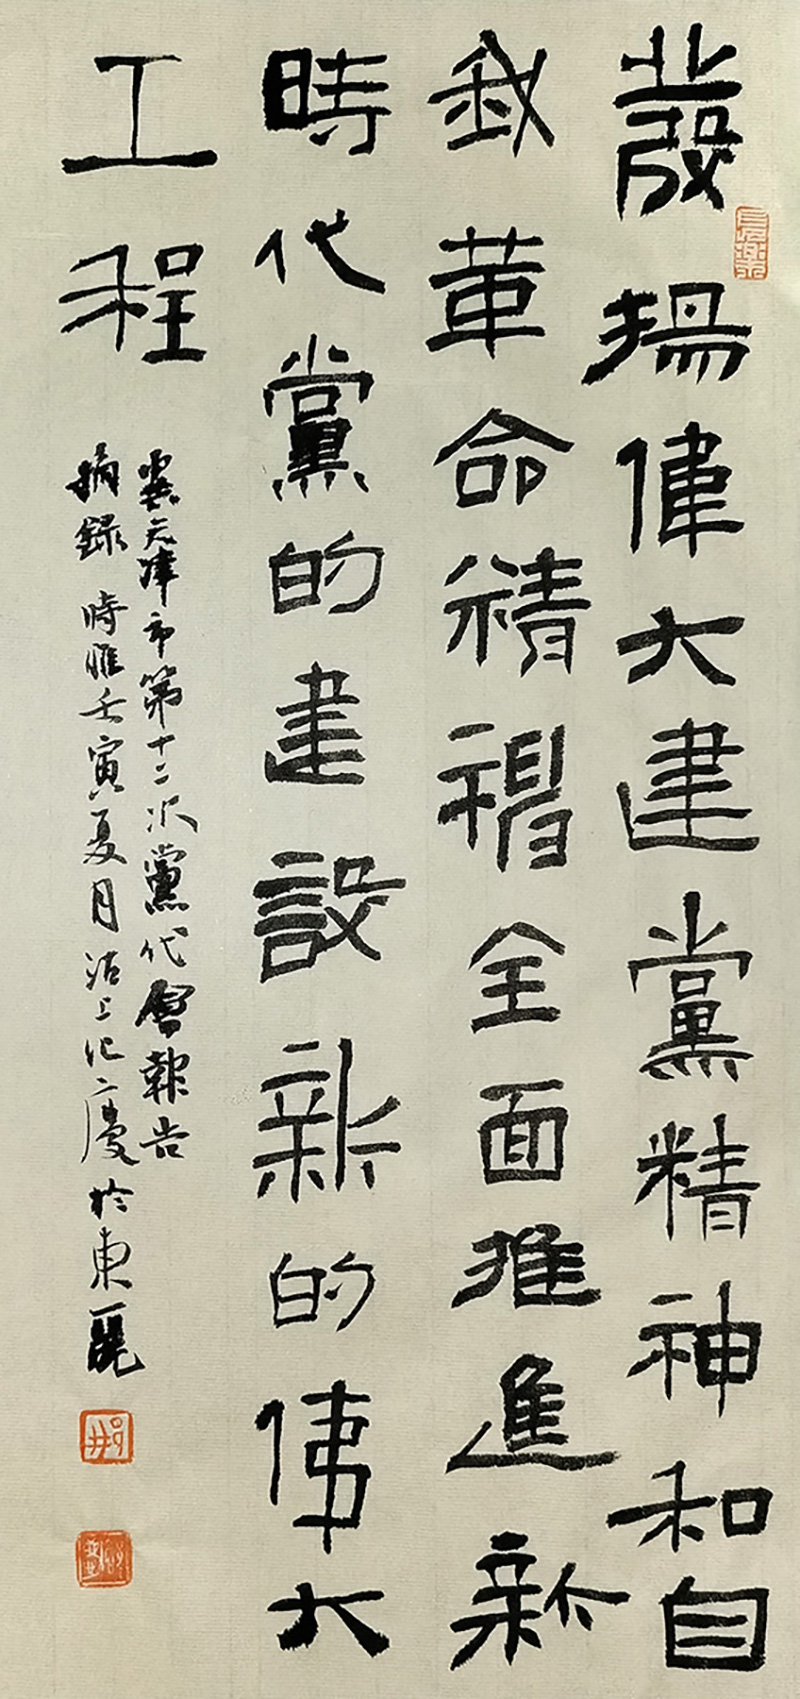 發揚偉大建黨精神和自
我革命精神全面推進新
時代黨的建設新的偉大
工程
天津市第十二次黨代會報告
摘錄 時維壬寅夏月沽上慶於東麗